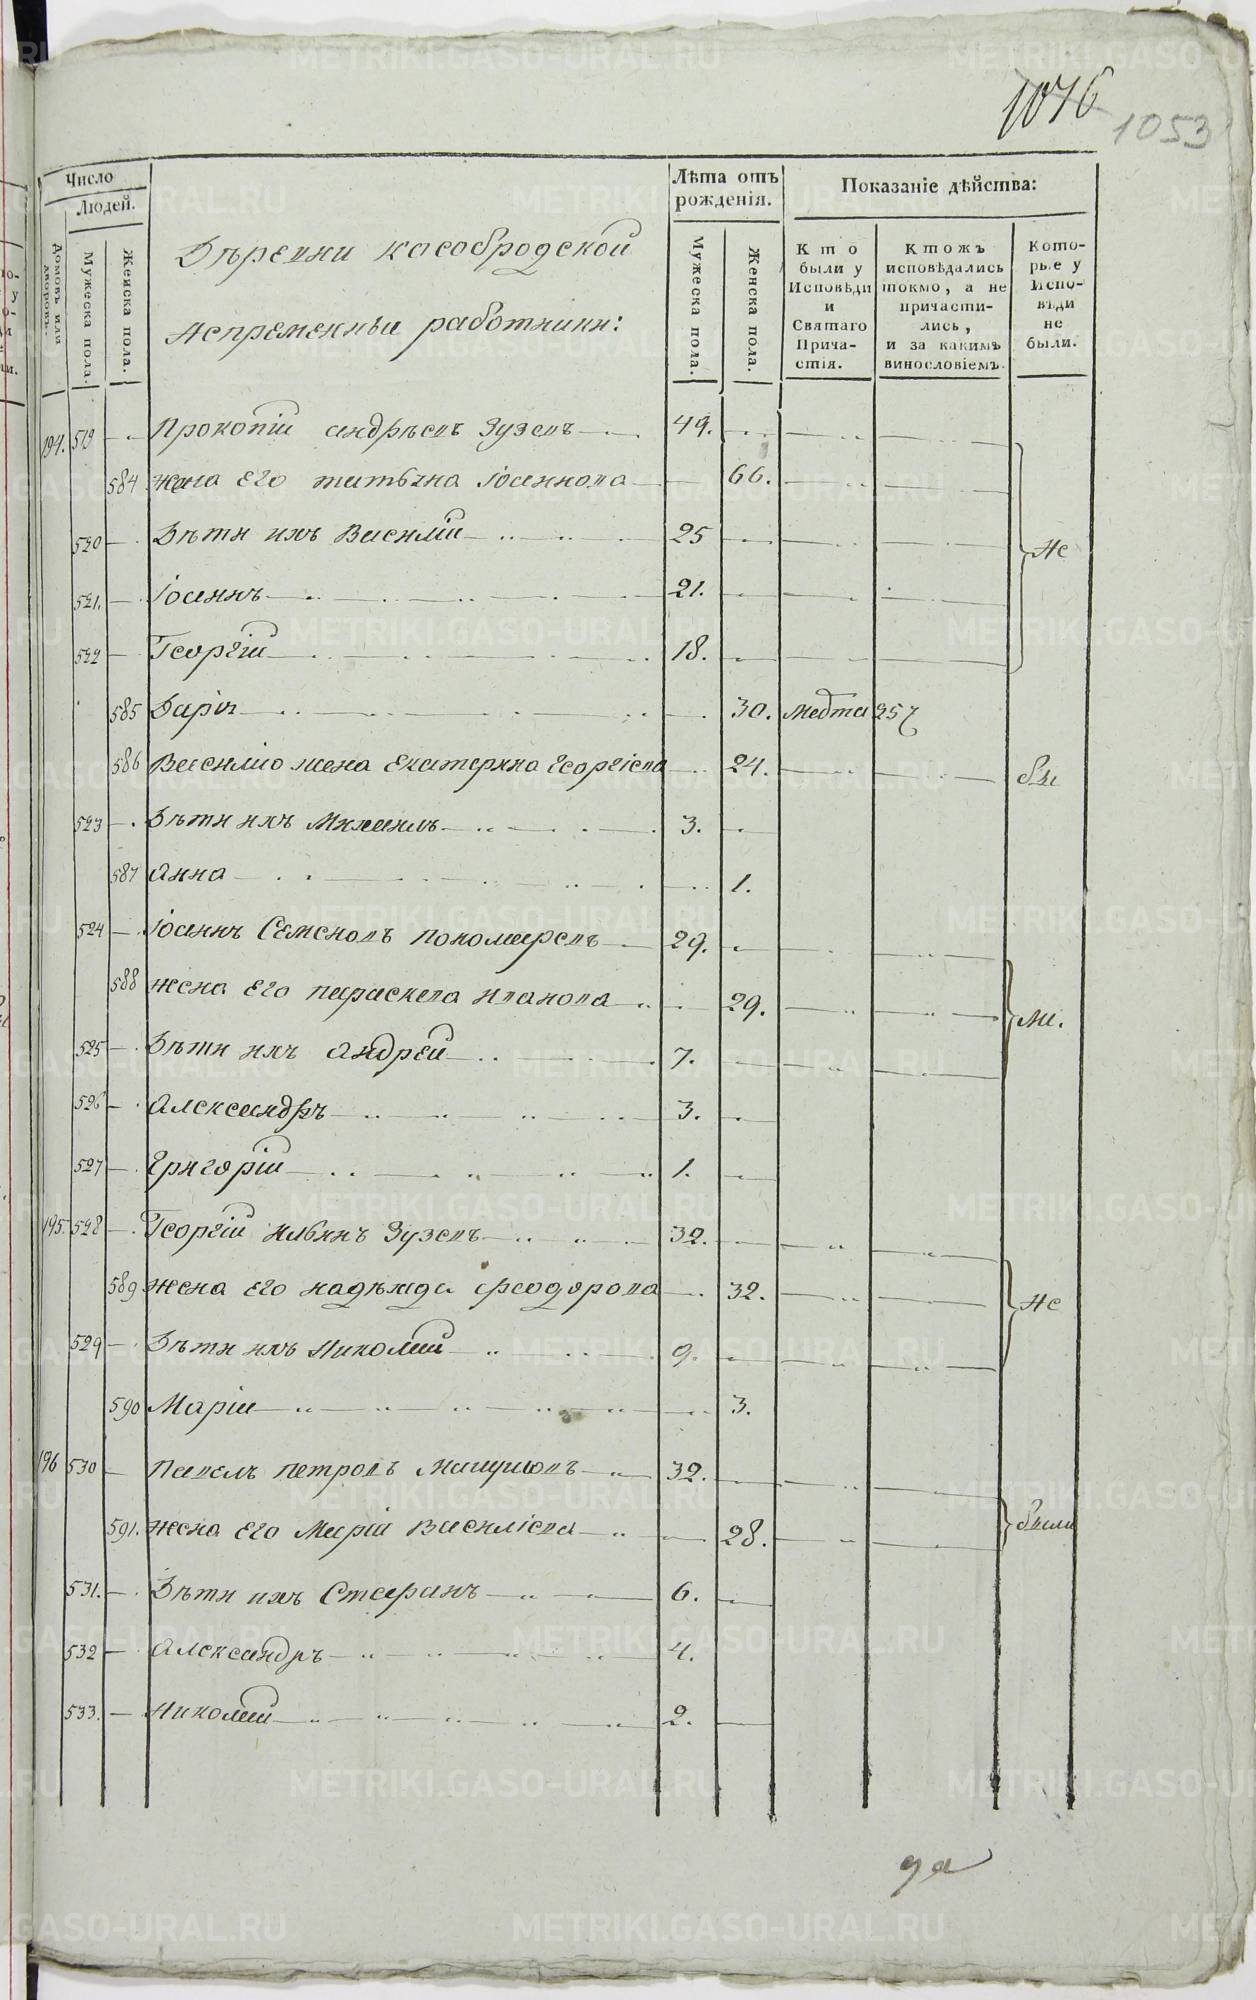 1046
1053
Число
Людей.
Домовъ или дворовъ.
Мужеска пола.
Женска пола.
Лѣта отъ рожденія.
Мужеска пола.
Женска пола.
Показаніе дѣйства:
Кто были у Исповѣди и Святаго Причастія.
Ктожъ исповѣдались токмо, а не причастились, и за какимъ винословіемъ.
Которые у Исповѣди не были.
Деревни касобродской
непременныи работники:
194. 519 Прокопій андрѣевъ Зуевъ 49.
584 жена его татьяна Іоаннова 66.
520 Дѣти ихъ Василій 25 не
521. Іоаннъ 21.
522 Георгій 18.
585 Дарія 30.
586 Василію жена екатерина Георгіева 24. бы
523 Дѣти ихъ Михаилъ 3.
587 анна 1.
524 Іоаннъ Семеновъ пономаревъ 29.
588 жена его параскева иванова 29. ли.
525 Дѣти ихъ андрей 7.
526 александръ 3.
527 григорій 1.
195. 528 Георгій ильинъ Зуевъ 32.
589 жена его надѣжда феодорова 32. не
529 Дѣти ихъ николай 9.
590 Марія 3.
196 530 павелъ петровъ 32.
591. жена его Марія Василіева 28. были
531. Дѣти ихъ Стефанъ 6.
532 александръ 4.
533. николай 2.
METRIKI.GASO-URAL.RU